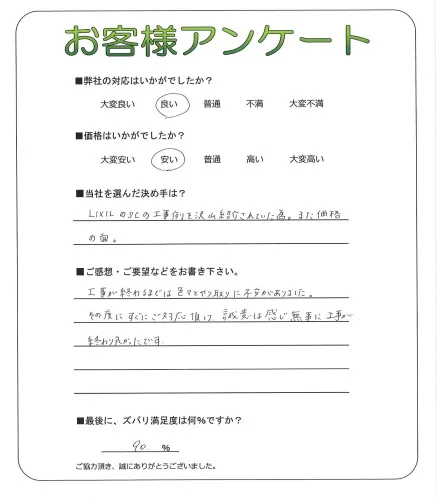 お客様アンケート
■弊社の対応はいかがでしたか?
大変良い 良い 普通 不満 大変不満
■価格はいかがでしたか?
大変安い 安い 普通 高い 大変高い
■当社を選んだ決め手は?
LIXILのSCの工事例を沢山紹介されていた為。また価格
の面。
■ご感想・ご要望などをお書き下さい。
工事が終わるまでは色々とやり取りに不安がありました。
その度にすぐにご対応頂け、誠意は感じ無事に工事が
終わり良かったです。
■最後に、ズバリ満足度は何%ですか?
90 %
ご協力頂き、誠にありがとうございました。